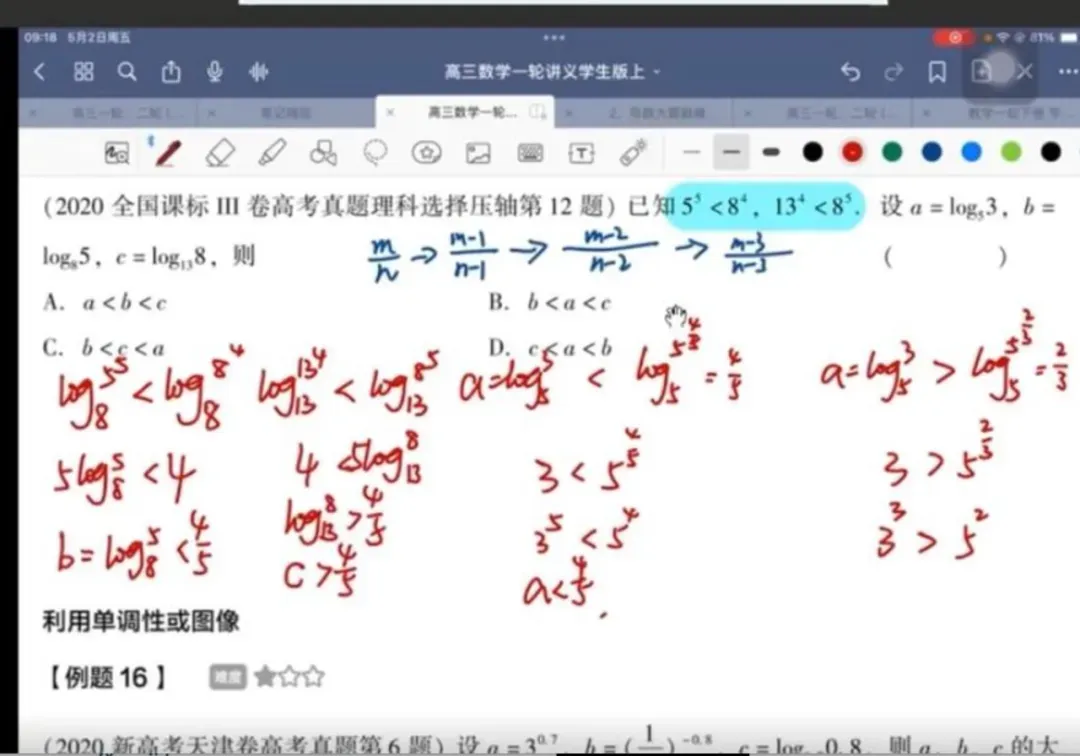 09:18 5月2日周五
81%
高三数学一轮讲义学生版上
高三一轮、二轮 (...
高三数学一轮...
高三一轮、二轮 (...
(2020 全国课标 III 卷高考真题理科选择压轴第 12 题) 已知 5⁵ < 8⁴, 13⁴ < 8⁵. 设 a = log₅3, b =
log₈5, c = log₁₃8, 则 ( )
m/n → m-1/n-1 → m-2/n-2 → m-3/n-3
A. a < b < c B. b < a < c
C. b < c < a D. c < a < b
log₈5⁵ < log₈8⁴ log₁₃13⁴ < log₁₃8⁵ a = log₅3 < log₅5^(4/5) = 4/5 a = log₅3 > log₅5^(2/3) = 2/3
5log₈5 < 4 4 < 5log₁₃8 3 < 5^(4/5) 3 > 5^(2/3)
b = log₈5 < 4/5 log₁₃8 > 4/5 3⁵ < 5⁴ 3³ > 5²
c > 4/5 a < 4/5.
利用单调性或图像
【例题 16】 难度
(2020 新高考天津卷高考真题第 6 题) 设 a = 3^0.7, b = (1/ )^-0.8, c = log 0.8, 则 a, b, c 的大